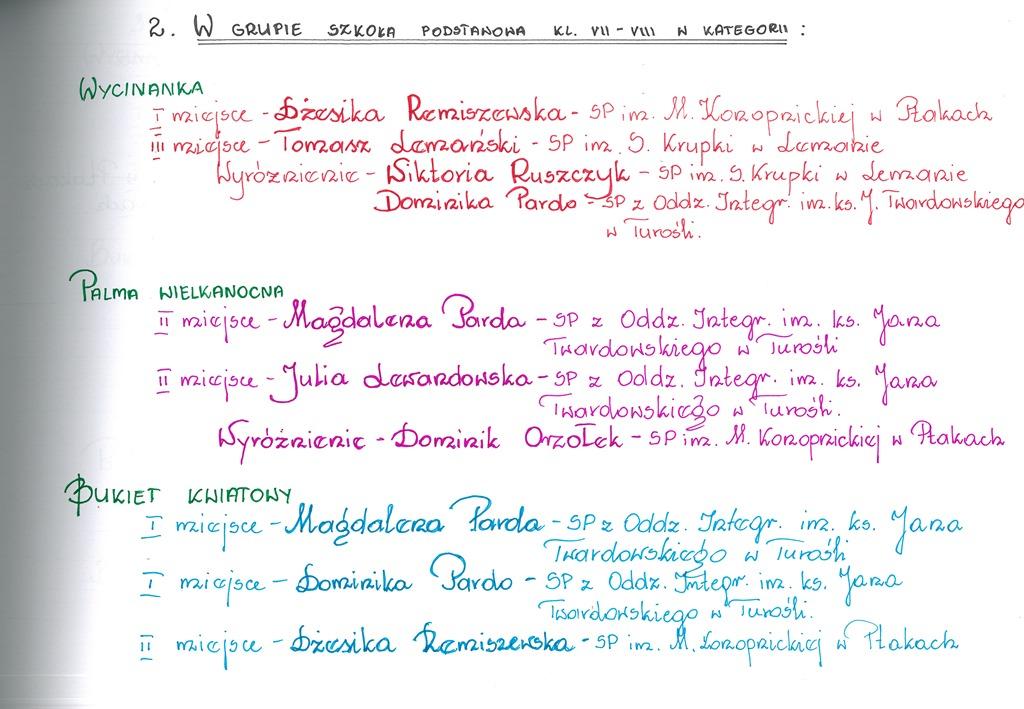 2. W GRUPIE SZKOŁA PODSTAWOWA KL. VII - VIII W KATEGORII :
WYCINANKA
I miejsce - Dżesika Remiszewska - SP im. M. Konopnickiej w Ptakach
III miejsce - Tomasz Lemański - SP im. S. Krupki w Lemanie
Wyróżnienie - Wiktoria Ruszczyk - SP im. S. Krupki w Lemanie
Dominika Pardo - SP z Oddz. Integr. im. ks. J. Twardowskiego
w Turośli.
PALMA WIELKANOCNA
II miejsce - Magdalena Parda - SP z Oddz. Integr. im. ks. Jana
Twardowskiego w Turośli
II miejsce - Julia Lewandowska - SP z Oddz. Integr. im. ks. Jana
Twardowskiego w Turośli.
Wyróżnienie - Dominik Orzołek - SP im. M. Konopnickiej w Ptakach
BUKIET KWIATOWY
I miejsce - Magdalena Parda - SP z Oddz. Integr. im. ks. Jana
Twardowskiego w Turośli
I miejsce - Dominika Pardo - SP z Oddz. Integr. im. ks. Jana
Twardowskiego w Turośli.
II miejsce - Dżesika Remiszewska - SP im. M. Konopnickiej w Ptakach